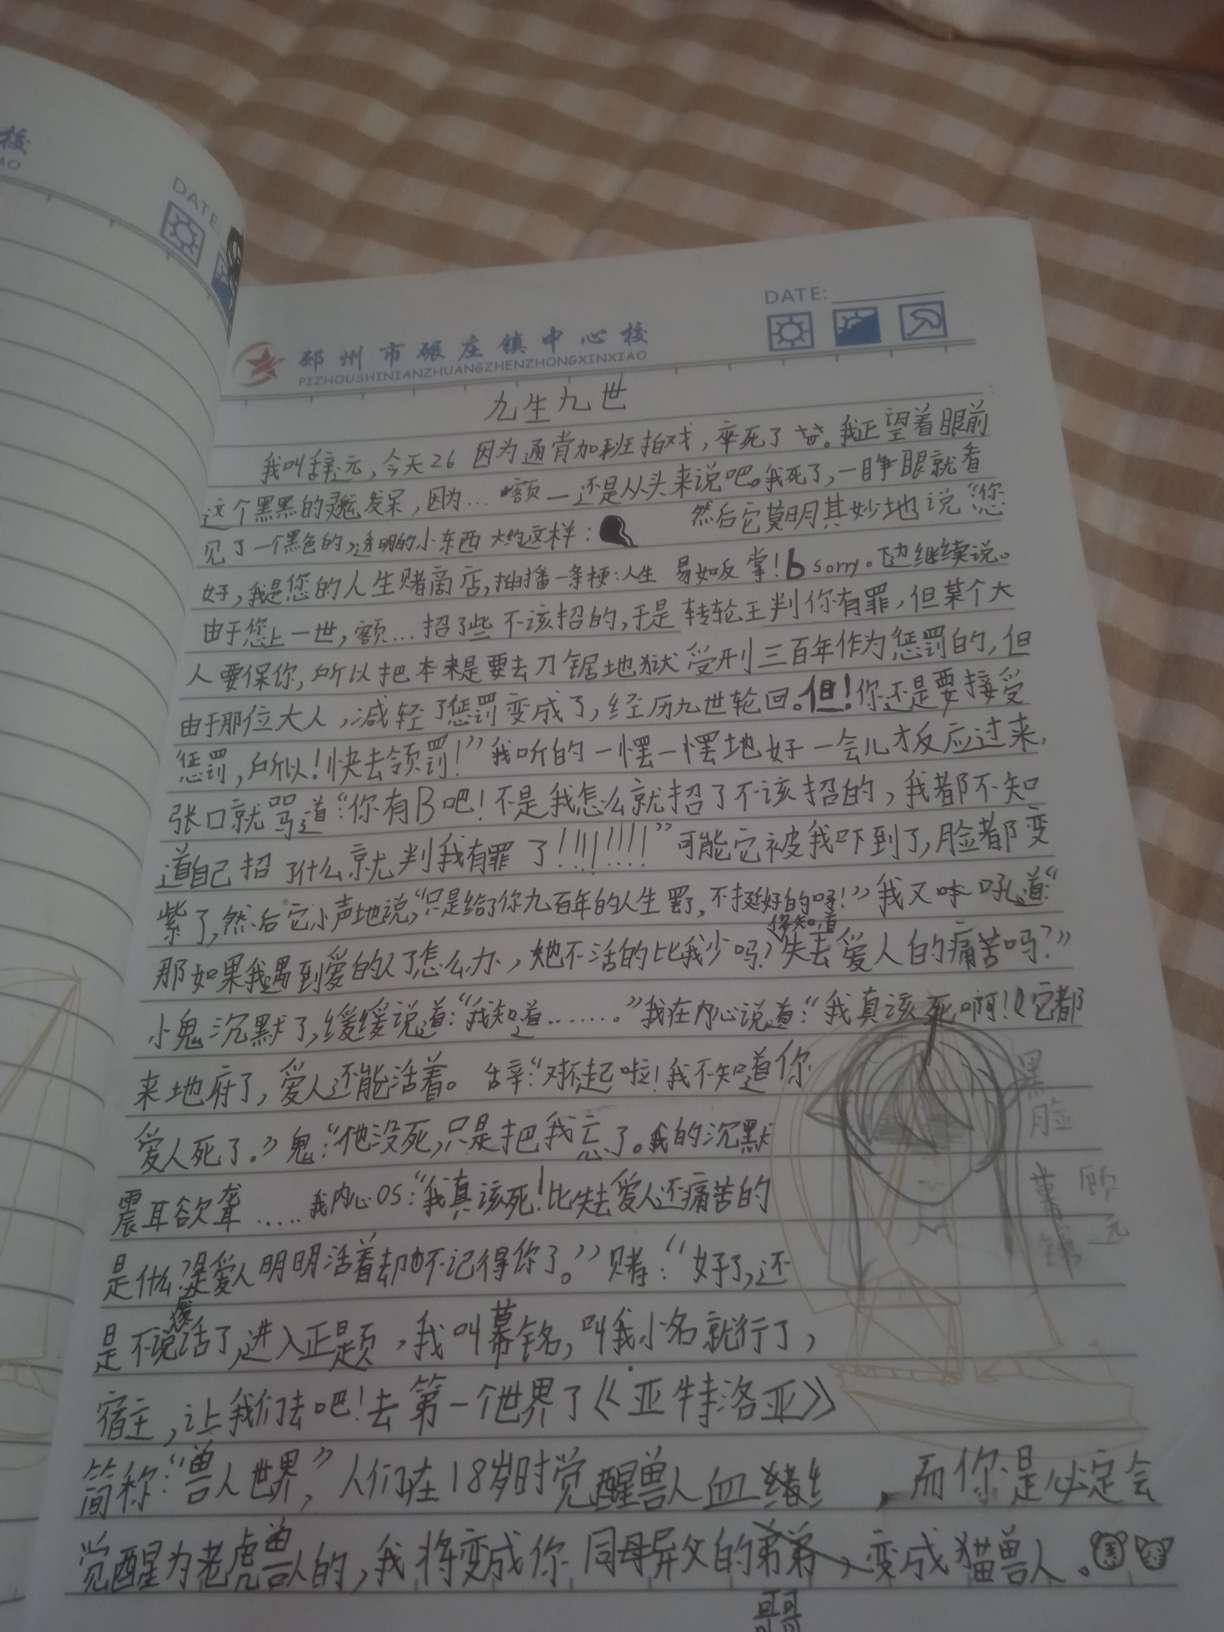 校
AO
DATE
DATE:
邳州市碾庄镇中心校
PIZHOUSHINIANZHUANGZHENZHONGXINXIAO
九生九世
我叫辞元,今天26 因为通宵加班拍戏,卒死了。我正望着眼前
这个黑黑的发呆,因为… 额—还是从头来说吧。我死了,一睁眼就看
见了一个黑色的,透明的小东西 大约这样: 然后它莫明其妙地说“您
好,我是您的人生赌商店,抽播一条梗:人生 易如反掌!b sorry。下边继续说。
由于您上一世,额…招了些不该招的,于是转轮王判你有罪,但某个大
人要保你,所以把本来是要去刀锯地狱受刑三百年作为惩罚的,但
由于那位大人,减轻了惩罚变成了,经历九世轮回。但!你还是要接受
惩罚,所以!快去领罚!”我听的一愣一愣地好一会儿才反应过来,
张口就骂道“你有B吧!不是我怎么就招了不该招的,我都不知
道自己招了什么就判我有罪了!!!!!!!!”可能它被我吓到了,脸都变
紫了,然后它小声地说,“只是给了你九百年的人生罢了,不挺好的呀!”我又吼道:“
那如果我遇到爱的人了怎么办,她不活的比我少吗?你知道失去爱人的痛苦吗?”
小鬼沉默了,缓缓说道:“我知道……。”我在内心说道:“我真该死啊!它都
来地府了,爱人还能活着。辞:“对不起啦!我不知道你
爱人死了。”鬼:“他没死,只是把我忘了。我的沉默
震耳欲聋…… 我内心OS:“我真该死!比失去爱人还痛苦的
是什么?是爱人明明活着却不记得你了。”赌:“好了,还
是不说废话了,进入正题,我叫幕铭,叫我小名就行了,
宿主,让我们去吧!去第一个世界了《亚特洛亚》
简称“兽人世界”,人们在18岁时觉醒兽人血,而你是必定会
觉醒为老虎兽人的,我将变成你同母异父的哥哥,变成猫兽人。
黑
脸
幕铭
顾元